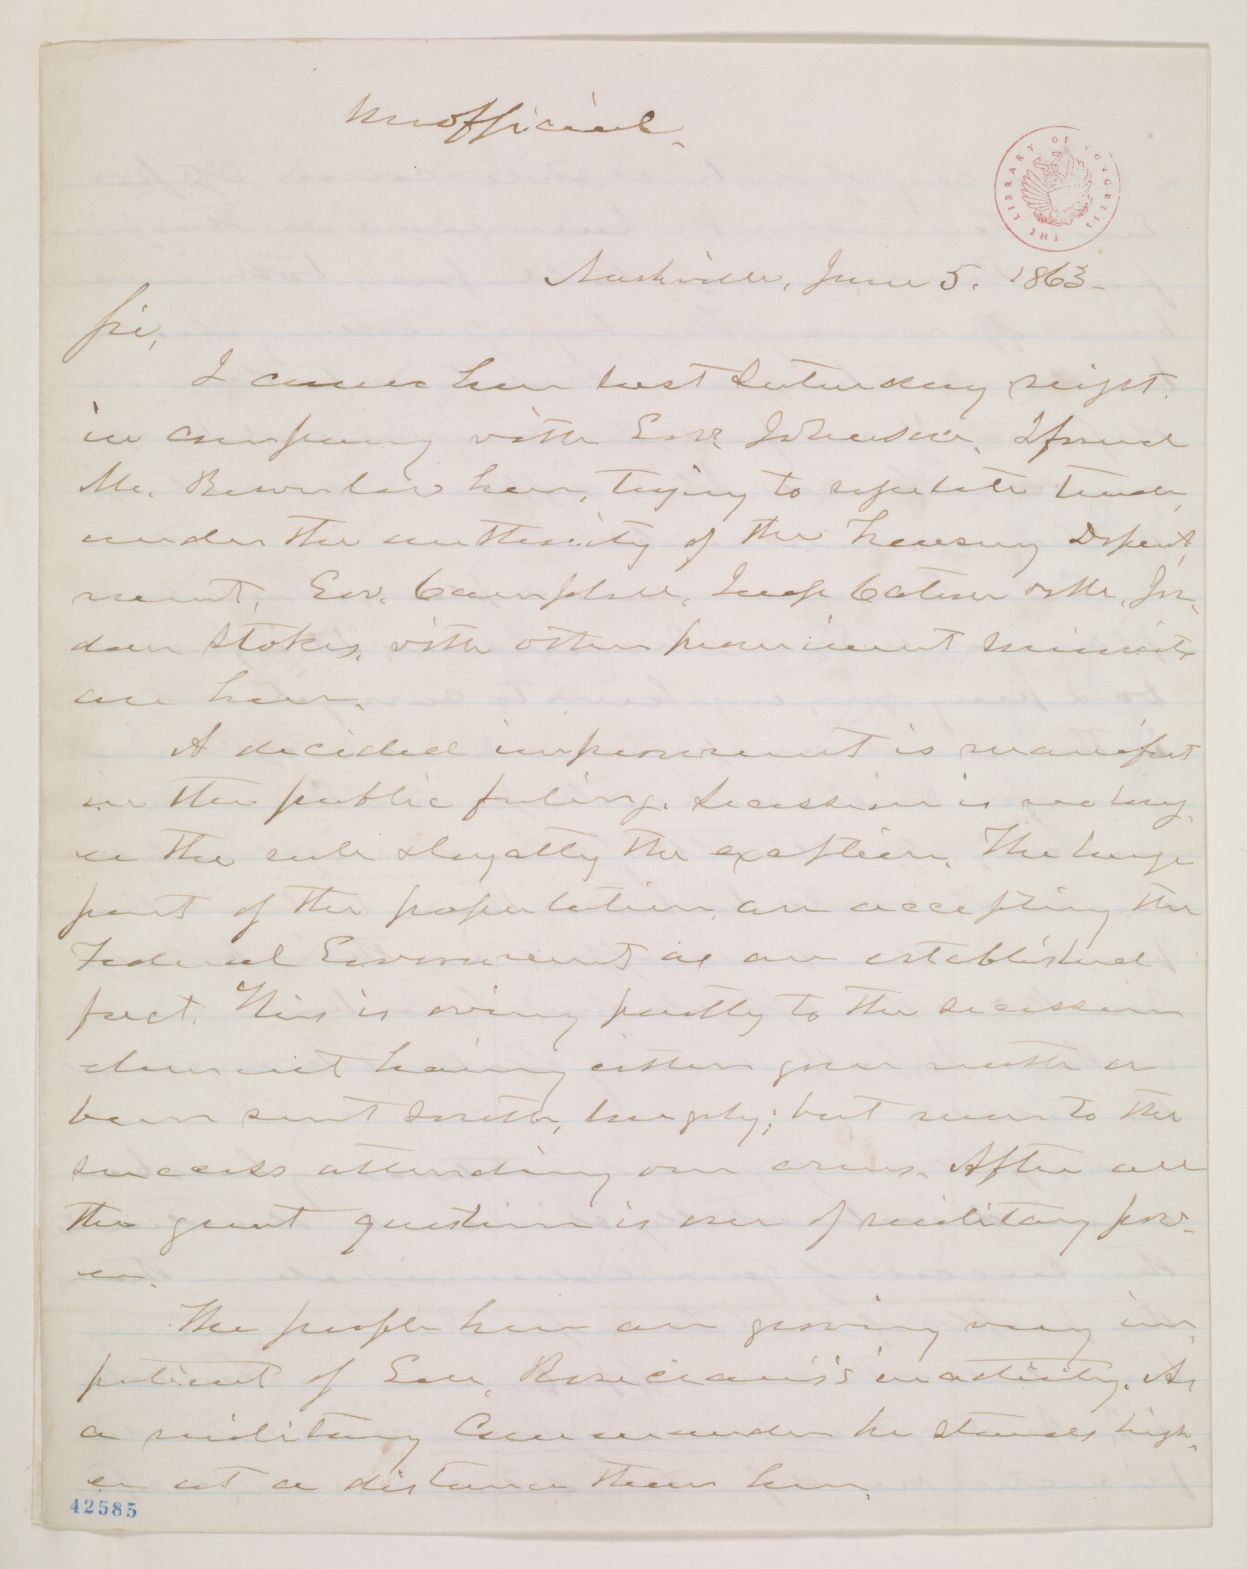 Unofficial.
THE LIBRARY OF CONGRESS
Nashville, June 5. 1863.
Sir,
I came here last Saturday night.
in company with Gov. Johnson. I found
Mr. Brownlow here, trying to regulate trade,
under the authority of the Treasury Depart,
ment. Gov. Campbell, Judge Catron & Mr. Jor,
dan Stokes, with other prominent Unionists
are here.
A decided improvement is manifest
in the public feeling. Secession is no long,
er the rule & loyalty the exception. The large
part of the population are accepting the
Federal Government as an established
fact. This is owing partly to the secession
element having either gone south or
been sent South, largely; but more to the
success attending our arms. After all
the great question is one of military pow-
er.
The people here are growing very im,
patient of Gen. Rosecrans's inactivity. As
a military Commander he stands high,
er at a distance than here.
42585